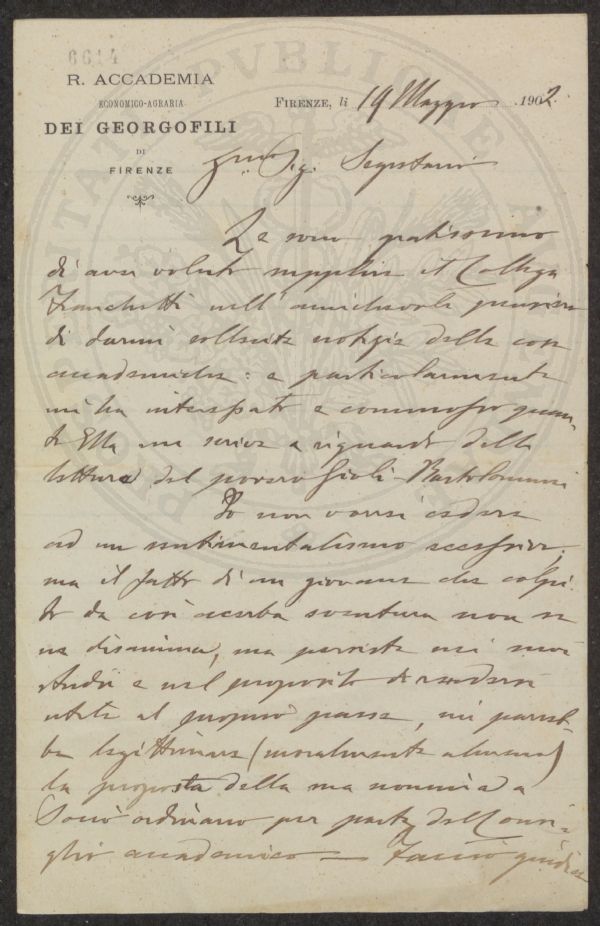 6614
R. ACCADEMIA
ECONOMICO-AGRARIA
DEI GEORGOFILI
DI
FIRENZE
FIRENZE, li 19 Maggio 1902.
Sig. Segretario
Le sono gratissimo
di aver voluto supplire il Collega
Franchetti nell'amichevole pensiero
di darmi sollecite notizie delle cose
accademiche: e particolarmente
mi ha interessato e commosso quan-
to Ella mi scrive a riguardo della
lettura del povero Gioli-Bartolommei
Io non vorrei cedere
ad un sentimentalismo eccessivo;
ma il fatto di un giovane che colpi-
to da così acerba sventura non se
ne disanima, ma persiste nei suoi
studi e nel proposito di rendersi
utile al proprio paese, mi pareb-
be legittimare (moralmente almeno)
la proposta della sua nomina a
Socio ordinario per parte del Consi-
glio accademico — Faccio